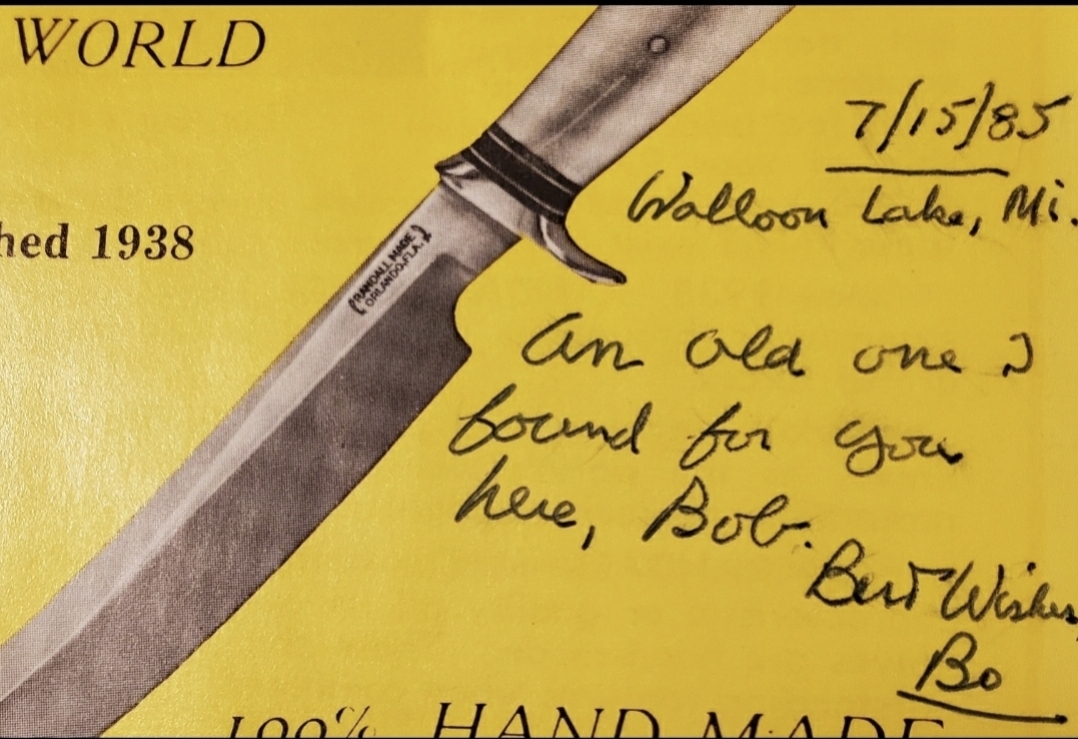 WORLD
7/15/85
Walloon Lake, Mi.
hed 1938
RANDALL MADE
ORLANDO, FLA.
An old one I
found for you
here, Bob.
Best Wishes,
Bo
100% HAND MADE